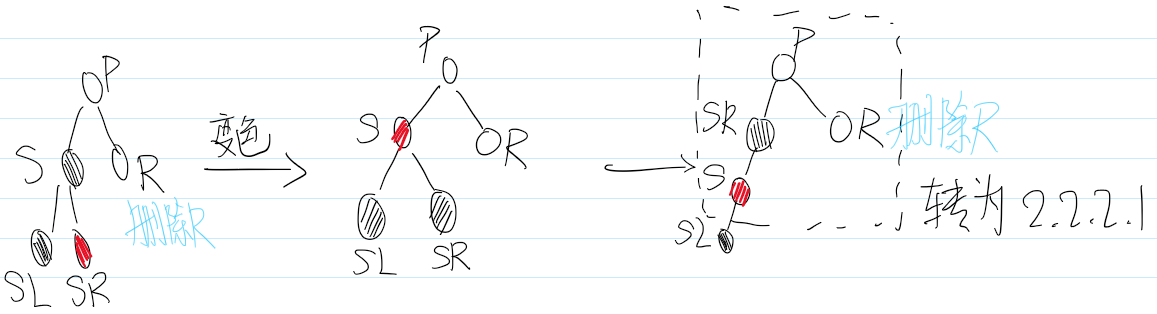 P
S
R
删除R
SL
SR
变色
P
S
R
SL
SR
P
SR
R
删除R
S
SL
转为 2.2.2.1